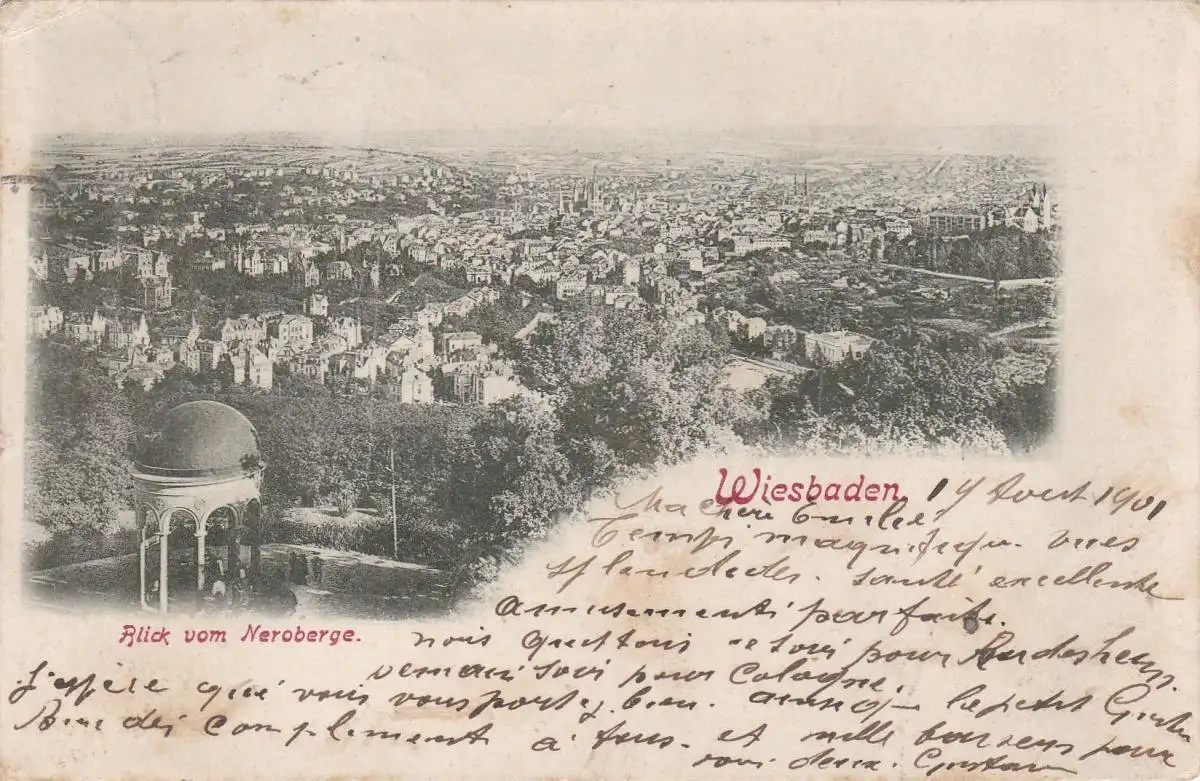 Wiesbaden. 14 Aout 1901
Ma chère Emilie
Temps magnifique. vues
splendides. santé excellente
amusements parfaits.
nous quittons ce soir pour Rudesheim.
demain soir pour Cologne.
Blick vom Neroberge.
J'espère que vous vous portez bien. ainsi que le petit
Bien des compliments à tous. et mille baisers pour
vous deux. Gustave